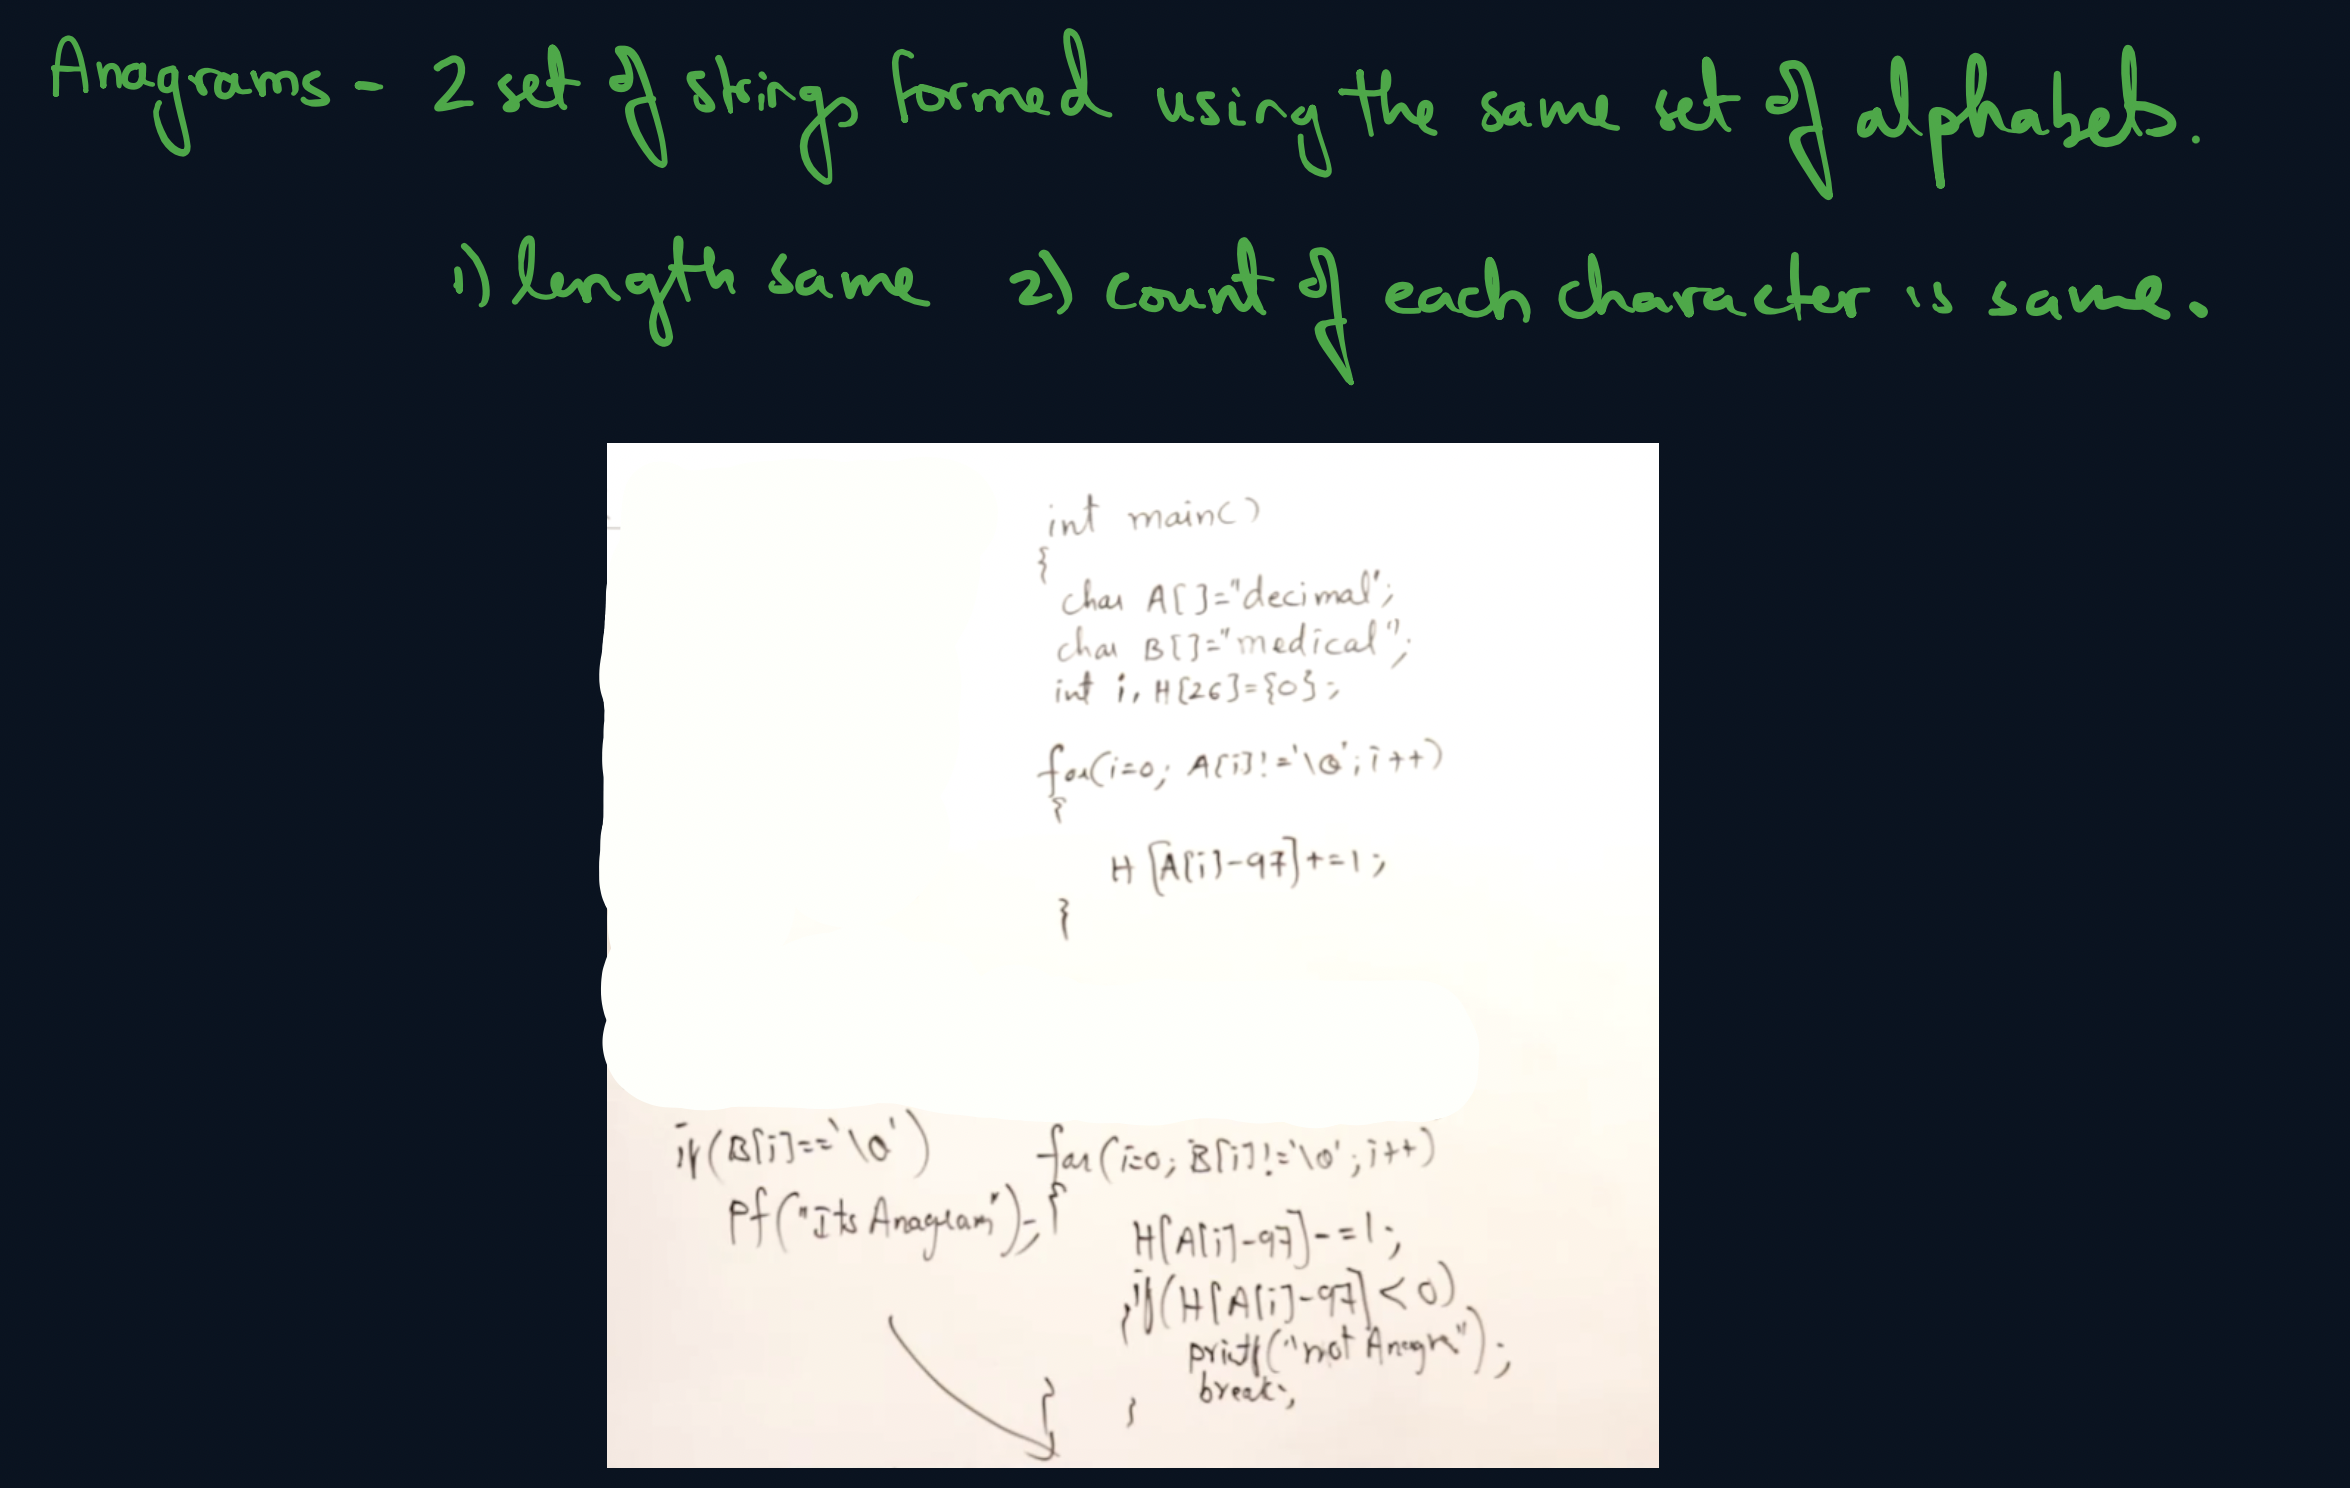 Anagrams - 2 set of strings formed using the same set of alphabets.
1) length same 2) count of each character is same.
int main()
{
char A[]="decimal";
char B[]="medical";
int i, H[26]={0};
for(i=0; A[i]!='\0'; i++)
{
H[A[i]-97]+=1;
}
for(i=0; B[i]!='\0'; i++)
{
H[A[i]-97]-=1;
if(H[A[i]-97]<0)
{
printf("not Anagr");
break;
}
}
if(B[i]=='\0')
Pf("Its Anagram");